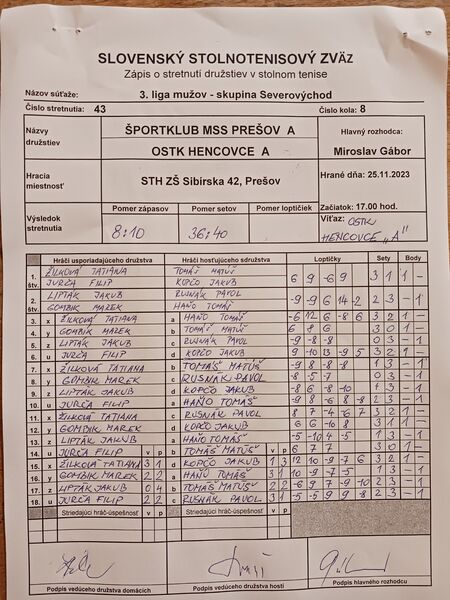 SLOVENSKÝ STOLNOTENISOVÝ ZVÄZ
Zápis o stretnutí družstiev v stolnom tenise
Názov súťaže: 3. liga mužov - skupina Severovýchod
Číslo stretnutia: 43 Číslo kola: 8
Názvy družstiev ŠPORTKLUB MSS PREŠOV A Hlavný rozhodca:
OSTK HENCOVCE A Miroslav Gábor
Hracia miestnosť STH ZŠ Sibírska 42, Prešov Hrané dňa: 25.11.2023
Pomer zápasov Pomer setov Pomer loptičiek Začiatok: 17.00 hod.
Výsledok stretnutia 8:10 36:40 Víťaz: OSTK
HENCOVCE „A"
Hráči usporiadajúceho družstva Hráči hosťujúceho družstva Loptičky Sety Body
1. štv. ŽILKOVÁ TATIANA TOMÁŠ MATÚŠ
JURČA FILIP KOPČO JAKUB 6 9 -6 9 3 1 1 -
2. štv. LIPTÁK JAKUB RUSNÁK PAVOL
GOMBÍK MAREK HAŇO TOMÁŠ -9 -9 6 14 -2 2 3 - 1
3. x ŽILKOVÁ TATIANA a HAŇO TOMÁŠ -6 12 6 -8 6 3 2 1 -
4. y GOMBÍK MAREK b TOMÁŠ MATÚŠ 6 8 6 3 0 1 -
5. z LIPTÁK JAKUB c RUSNÁK PAVOL -9 -8 -8 0 3 - 1
6. u JURČA FILIP d KOPČO JAKUB 9 -10 13 -9 5 3 2 1 -
7. x ŽILKOVÁ TATIANA b TOMÁŠ MATÚŠ -9 8 -8 -8 1 3 - 1
8. y GOMBÍK MAREK c RUSNÁK PAVOL -8 -5 -7 0 3 - 1
9. z LIPTÁK JAKUB d KOPČO JAKUB -8 6 -8 -10 1 3 - 1
10. u JURČA FILIP a HAŇO TOMÁŠ -9 8 -6 8 -8 2 3 - 1
11. x ŽILKOVÁ TATIANA c RUSNÁK PAVOL 8 7 -4 -6 7 3 2 1 -
12. y GOMBÍK MAREK d KOPČO JAKUB 6 6 -10 8 3 1 1 -
13. z LIPTÁK JAKUB a HAŇO TOMÁŠ -5 -10 4 -5 1 3 - 1
14. u JURČA FILIP v p b TOMÁŠ MATÚŠ v p 6 7 7 3 0 1 -
15. x ŽILKOVÁ TATIANA 3 1 d KOPČO JAKUB 1 3 12 10 -9 -7 6 3 2 1 -
16. y GOMBÍK MAREK 2 2 a HAŇO TOMÁŠ 3 1 10 -9 -7 -5 1 3 - 1
17. z LIPTÁK JAKUB 0 4 b TOMÁŠ MATÚŠ 2 2 -6 9 7 -9 -10 2 3 - 1
18. u JURČA FILIP 2 2 c RUSNÁK PAVOL 3 1 -5 -5 9 9 -8 2 3 - 1
Striedajúci hráč-úspešnosť v p Striedajúci hráč-úspešnosť v p
Podpis vedúceho družstva domácich Podpis vedúceho družstva hostí Podpis hlavného rozhodcu